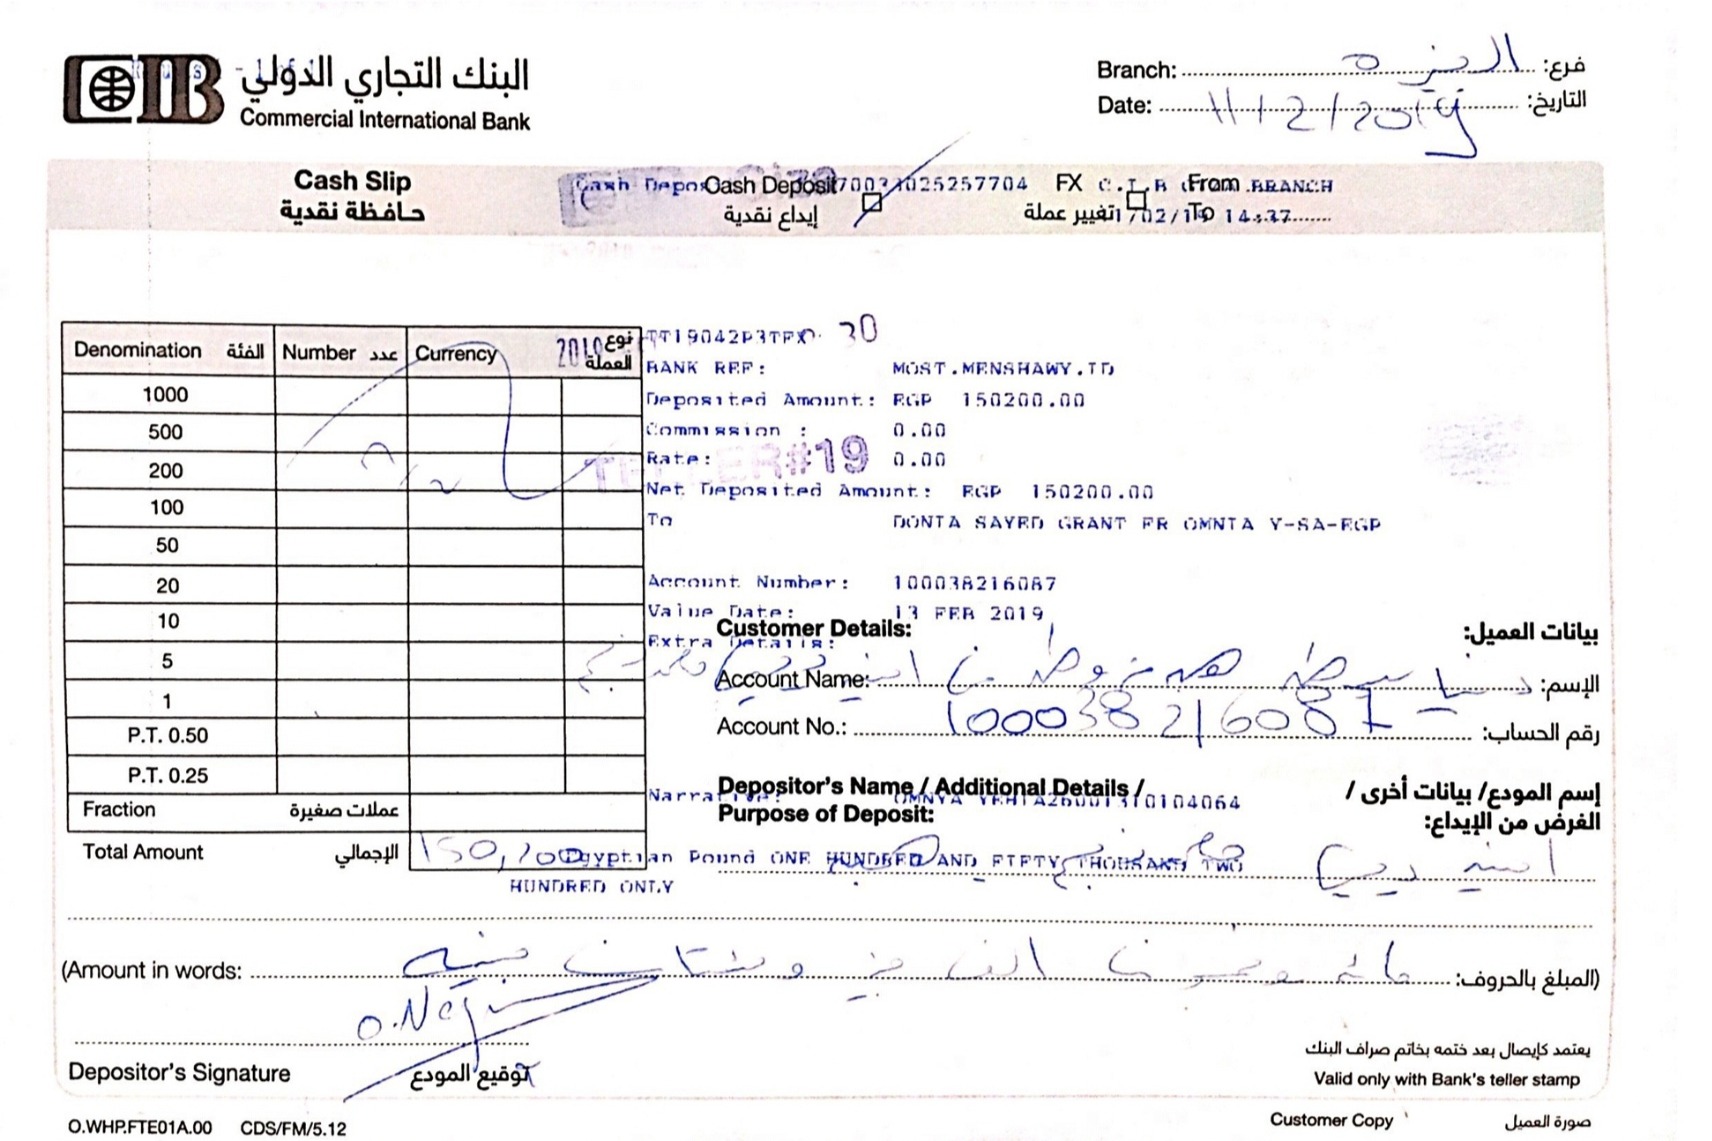 البنك التجاري الدولي
Commercial International Bank
Branch: الجيزة فرع:
Date: 11/2/2019 التاريخ:
Cash Slip
حافظة نقدية
Cash Deposit
إيداع نقدية
FX
تغيير عملة
From
To
C.I.B
BRANCH
14:37
Denomination الفئة Number عدد Currency نوع العملة
1000
500
200
100
50
20
10
5
1
P.T. 0.50
P.T. 0.25
Fraction عملات صغيرة
Total Amount الإجمالي 150,200
30
BANK REF: MOST.MENSHAWY.TD
Deposited Amount: EGP 150200.00
Commission : 0.00
Rate: 0.00
TELLER#19
Net Deposited Amount: EGP 150200.00
To DONIA SAYED GRANT FR OMNIA Y-SA-EGP
Account Number: 100038216087
Value Date: 13 FEB 2019
Extra Details:
Customer Details: بيانات العميل:
Account Name: الإسم:
Account No.: 100038216087 رقم الحساب:
Depositor's Name / Additional Details / إسم المودع/ بيانات أخرى /
Purpose of Deposit: الغرض من الإيداع:
Narrative: OMNYA YEHIA26001310104064
Egyptian Pound ONE HUNDRED AND FIFTY THOUSAND TWO
HUNDRED ONLY
(Amount in words: مائة وخمسون الف و مئتان جنيه (المبلغ بالحروف:
O.Negm
Depositor's Signature توقيع المودع
يعتمد كإيصال بعد ختمه بخاتم صراف البنك
Valid only with Bank's teller stamp
O.WHP.FTE01A.00 CDS/FM/5.12
Customer Copy صورة العميل